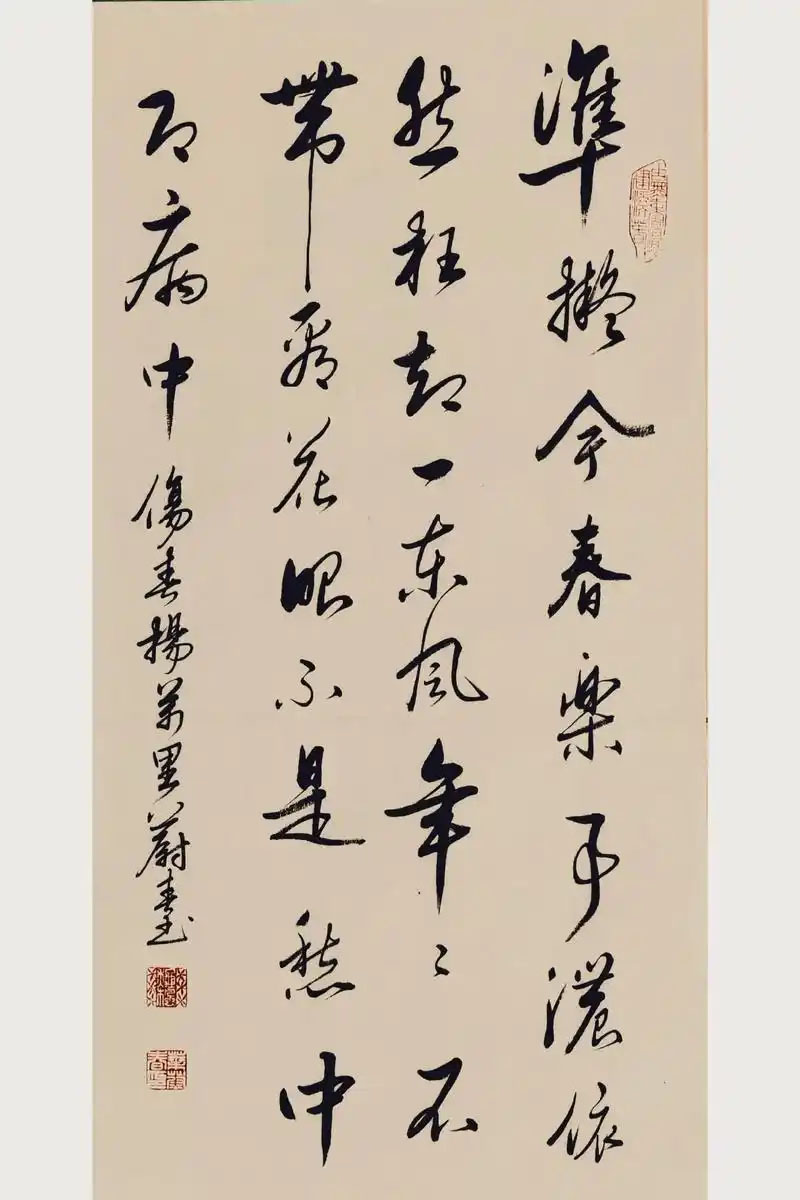 準擬今春樂事濃依
然枉却一東風年〻不
帶看花眼不是愁中
即病中 傷春楊萬里蔚